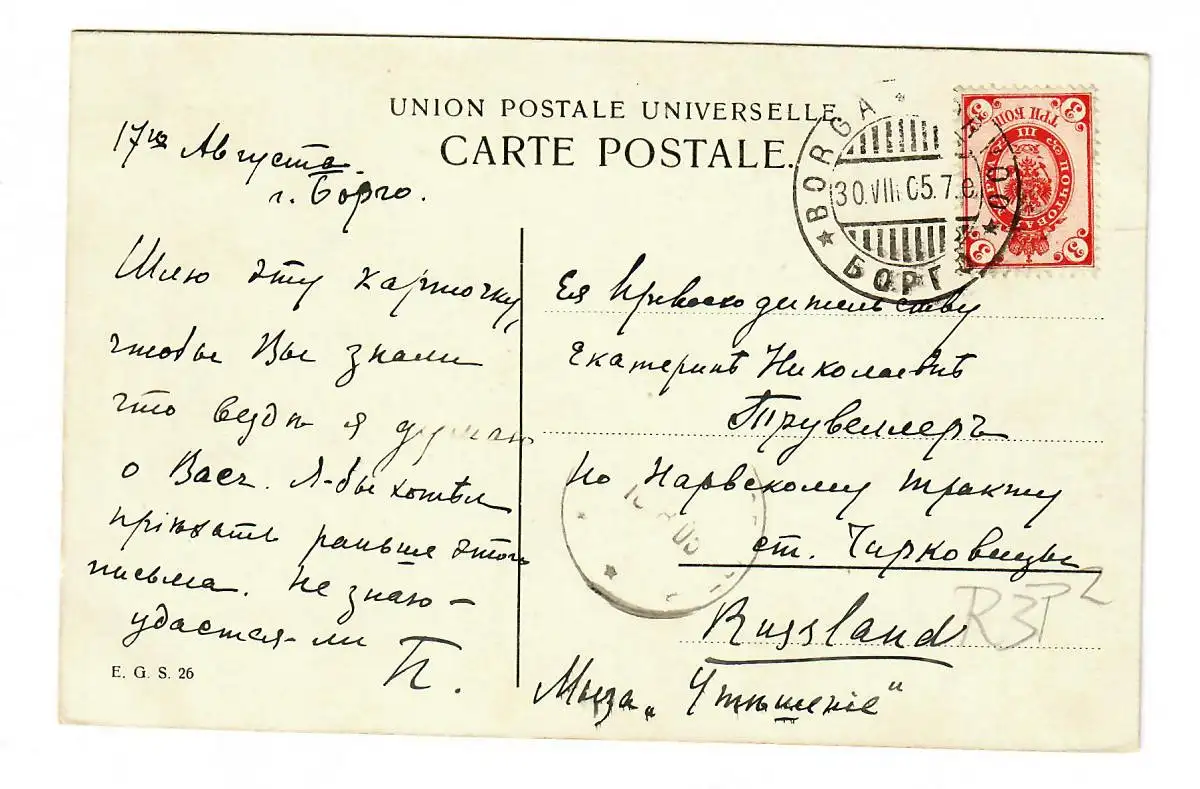 UNION POSTALE UNIVERSELLE
CARTE POSTALE.
17го Августа.
г. Борго.
Шлю эту карточку,
чтобы Вы знали
что вездѣ я думаю
о Васъ. Я-бы хотѣл
пріѣхать раньше этого
письма. Не знаю -
удастся-ли
П.
E. G. S. 26
BORGÅ
30.VIII.05.7.e
БОРГО
3
ТРИ КОП
III
ПОЧТОВАЯ МАРКА
Ея Превосходительству
Екатеринѣ Николаевнѣ
Трувеллеръ
По Нарвскому тракту
ст. Чирковицы
Russland
Мыза „Утѣшеніе"
R3P2